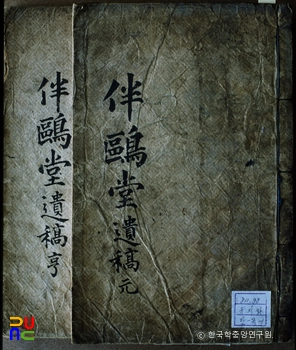 伴鷗堂遺稿元
伴鷗堂遺稿亨
© 한국학중앙연구원